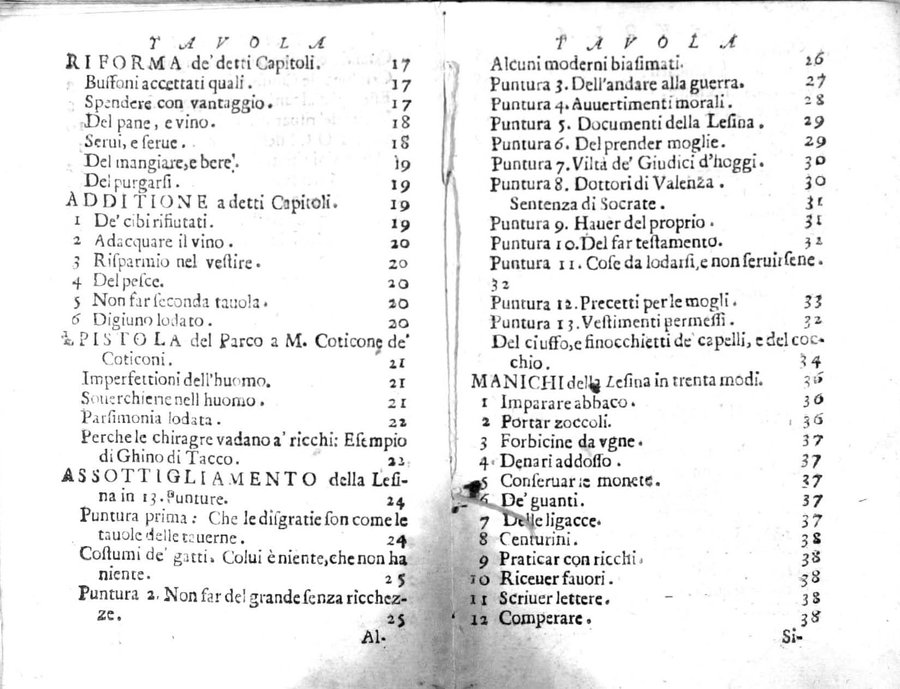 TAVOLA
RIFORMA de' detti Capitoli. 17
Buffoni accettati quali. 17
Spendere con vantaggio. 17
Del pane, e vino. 18
Serui, e serue. 18
Del mangiare, e bere'. 19
Del purgarsi. 19
ADDITIONE a detti Capitoli. 19
1 De' cibi rifiutati. 19
2 Adacquare il vino. 20
3 Risparmio nel vestire. 20
4 Del pesce. 20
5 Non far seconda tauola. 20
6 Digiuno lodato. 20
EPISTOLA del Parco a M. Coticone de'
Coticoni. 21
Imperfettioni dell'huomo. 21
Souerchie nell huomo. 21
Parsimonia lodata. 22
Perche le chiragre vadano a' ricchi: Esempio
di Ghino di Tacco. 22
ASSOTTIGLIAMENTO della Lesi-
na in 13. Punture. 24
Puntura prima: Che le disgratie son come le
tauole delle tauerne. 24
Costumi de' gatti. Colui è niente, che non ha
niente. 25
Puntura 2. Non far del grande senza ricchez-
ze. 25
Al-
TAVOLA
Alcuni moderni biasimati. 26
Puntura 3. Dell'andare alla guerra. 27
Puntura 4. Auuertimenti morali. 28
Puntura 5. Documenti della Lesina. 29
Puntura 6. Del prender moglie. 29
Puntura 7. Viltà de' Giudici d'hoggi. 30
Puntura 8. Dottori di Valenza. 30
Sentenza di Socrate. 31
Puntura 9. Hauer del proprio. 31
Puntura 10. Del far testamento. 32
Puntura 11. Cose da lodarsi, e non seruirsene.
32
Puntura 12. Precetti per le mogli. 33
Puntura 13. Vestimenti permessi. 32
Del ciuffo, e finocchietti de' capelli, e del coc-
chio. 34
MANICHI della Lesina in trenta modi. 36
1 Imparare abbaco. 36
2 Portar zoccoli. 36
3 Forbicine da vgne. 37
4 Denari addosso. 37
5 Conseruar le monete. 37
6 De' guanti. 37
7 Delle ligacce. 37
8 Centurini. 38
9 Praticar con ricchi. 38
10 Riceuer fauori. 38
11 Scriuer lettere. 38
12 Comperare. 38
Si-